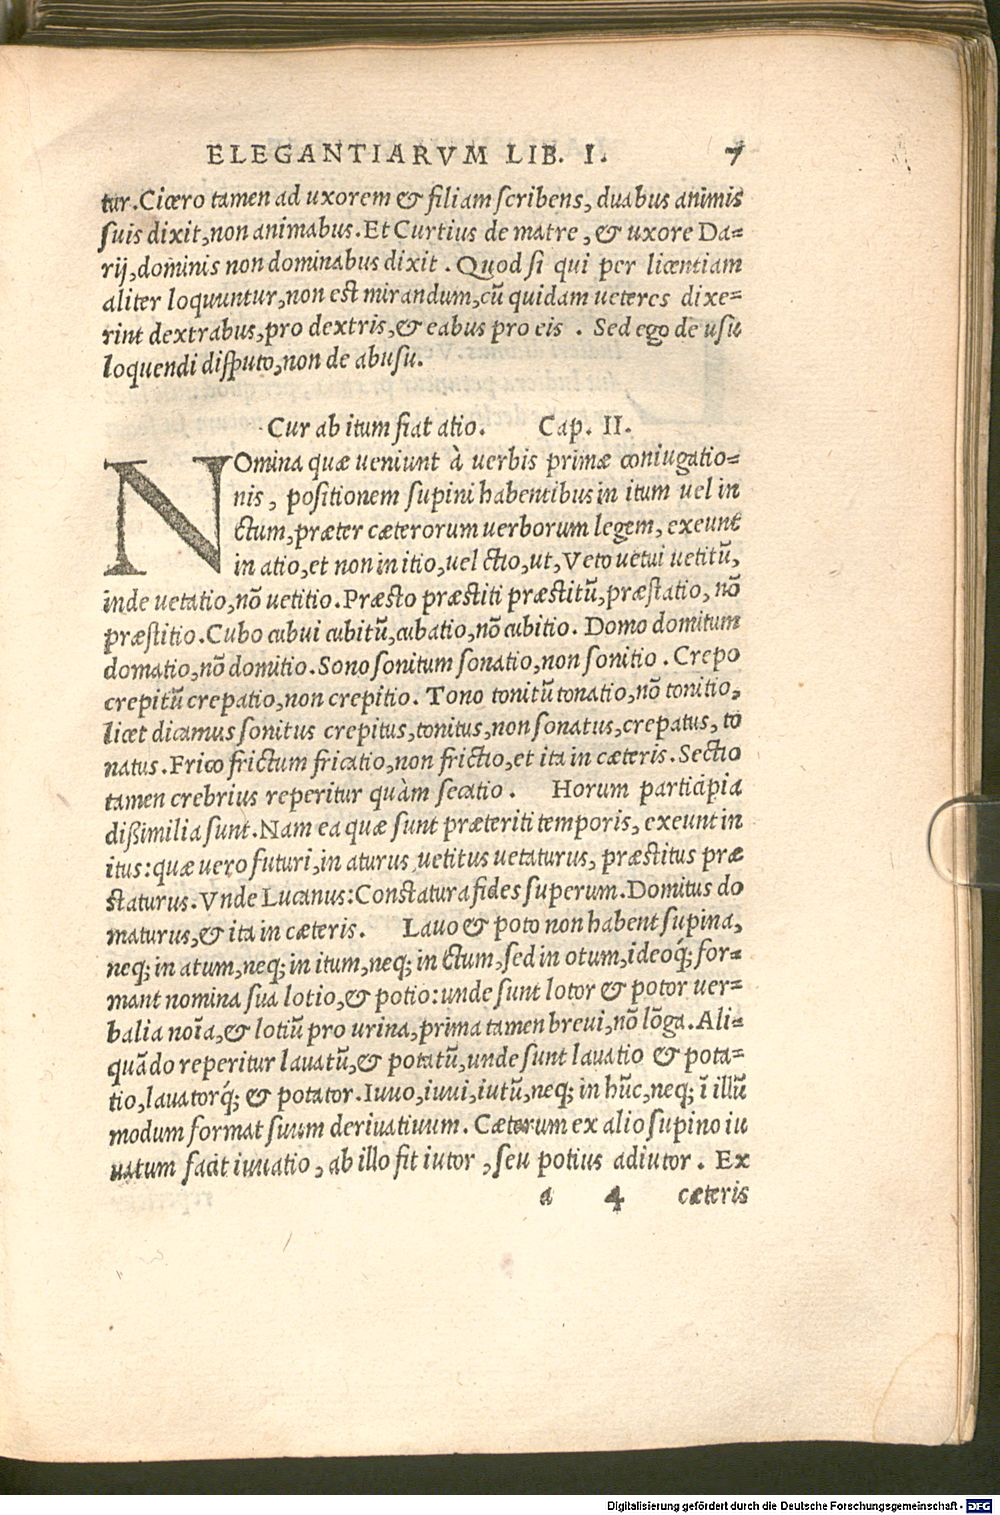 ELEGANTIARVM LIB. I. 7
tur. Cicero tamen ad uxorem & filiam scribens, duabus animis
suis dixit, non animabus. Et Curtius de matre, & uxore Da=
rij, dominis non dominabus dixit. Quod si qui per licentiam
aliter loquuntur, non est mirandum, cũ quidam ueteres dixe=
rint dextrabus, pro dextris, & eabus pro eis. Sed ego de usu
loquendi disputo, non de abusu.
Cur ab itum fiat atio. Cap. II.
NOmina quæ ueniunt à uerbis primæ coniugatio=
nis, positionem supini habentibus in itum uel in
ctum, præter cæterorum uerborum legem, exeunt
in atio, et non in itio, uel ctio, ut, Veto uetui uetitũ,
inde uetatio, nõ uetitio. Præsto præstiti præstitũ, præstatio, nõ
præstitio. Cubo cubui cubitũ, cubatio, nõ cubitio. Domo domitum
domatio, nõ domitio. Sono sonitum sonatio, non sonitio. Crepo
crepitũ crepatio, non crepitio. Tono tonitũ tonatio, nõ tonitio,
licet dicamus sonitus crepitus, tonitus, non sonatus, crepatus, to
natus. Frico frictum fricatio, non frictio, et ita in cæteris. Sectio
tamen crebrius reperitur quàm secatio. Horum participia
dißimilia sunt. Nam ea quæ sunt præteriti temporis, exeunt in
itus: quæ vero futuri, in aturus, uetitus uetaturus, præstitus præ
staturus. Vnde Lucanus: Constatura fides superum. Domitus do
maturus, & ita in cæteris. Lauo & poto non habent supina,
neq; in atum, neq; in itum, neq; in ctum, sed in otum, ideoq́; for=
mant nomina sua lotio, & potio: unde sunt lotor & potor uer=
balia noĩa, & lotiũ pro urina, prima tamen breui, nõ lõga. Ali=
quãdo reperitur lauatũ, & potatũ, unde sunt lauatio & pota=
tio, lauatorq́; & potator. Iuuo, iuui, iutũ, neq; in hũc, neq; ĩ illũ
modum format suum deriuatiuum. Cæterum ex alio supino iu
uatum facit iuuatio, ab illo fit iutor, seu potius adiutor. Ex
a 4 cæteris
Digitalisierung gefördert durch die Deutsche Forschungsgemeinschaft - DFG